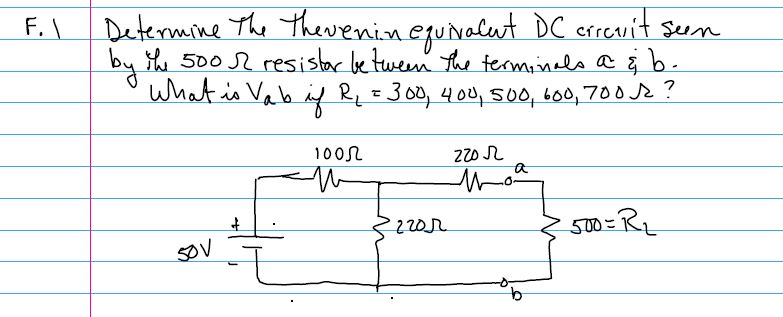 F.1 Determine The Thevenin equivalent DC circuit seen
by the 500 Ω resistor between the terminals a & b.
What is Vab if RL = 300, 400, 500, 600, 700 Ω ?
100Ω 220Ω
a
+
50V
-
220Ω
500 = RL
b